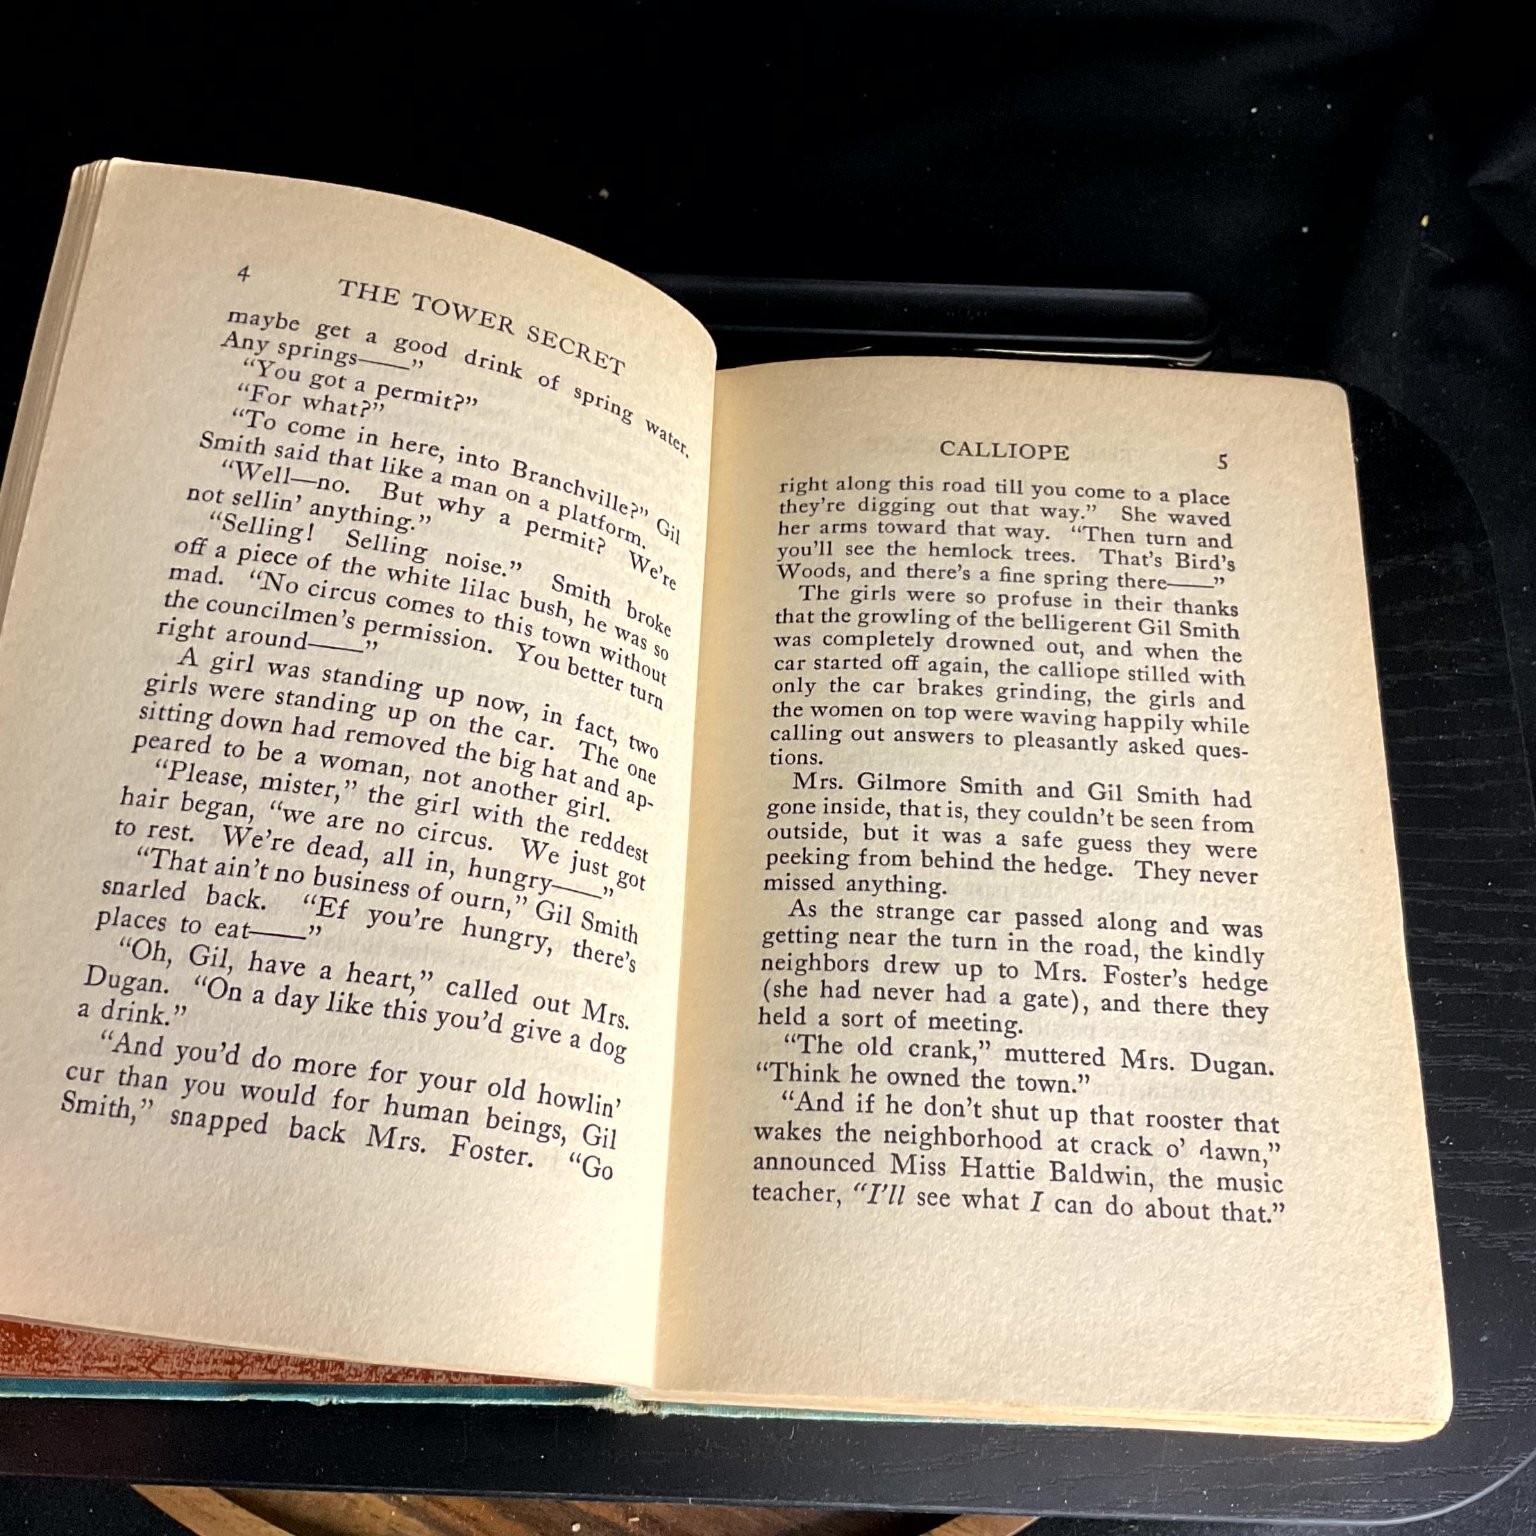 4
THE TOWER SECRET
maybe get a good drink of spring water.
Any springs——”
“You got a permit?”
“For what?”
“To come in here, into Branchville?” Gil
Smith said that like a man on a platform.
“Well—no. But why a permit? We're
not sellin' anything.”
“Selling! Selling noise.” Smith broke
off a piece of the white lilac bush, he was so
mad. “No circus comes to this town without
the councilmen's permission. You better turn
right around——”
A girl was standing up now, in fact, two
girls were standing up on the car. The one
sitting down had removed the big hat and ap-
peared to be a woman, not another girl.
“Please, mister,” the girl with the reddest
hair began, “we are no circus. We just got
to rest. We're dead, all in, hungry——”
“That ain't no business of ourn,” Gil Smith
snarled back. “Ef you're hungry, there's
places to eat——”
“Oh, Gil, have a heart,” called out Mrs.
Dugan. “On a day like this you'd give a dog
a drink.”
“And you'd do more for your old howlin'
cur than you would for human beings, Gil
Smith,” snapped back Mrs. Foster. “Go
CALLIOPE
5
right along this road till you come to a place
they're digging out that way.” She waved
her arms toward that way. “Then turn and
you'll see the hemlock trees. That's Bird's
Woods, and there's a fine spring there——”
The girls were so profuse in their thanks
that the growling of the belligerent Gil Smith
was completely drowned out, and when the
car started off again, the calliope stilled with
only the car brakes grinding, the girls and
the women on top were waving happily while
calling out answers to pleasantly asked ques-
tions.
Mrs. Gilmore Smith and Gil Smith had
gone inside, that is, they couldn't be seen from
outside, but it was a safe guess they were
peeking from behind the hedge. They never
missed anything.
As the strange car passed along and was
getting near the turn in the road, the kindly
neighbors drew up to Mrs. Foster's hedge
(she had never had a gate), and there they
held a sort of meeting.
“The old crank,” muttered Mrs. Dugan.
“Think he owned the town.”
“And if he don't shut up that rooster that
wakes the neighborhood at crack o' dawn,”
announced Miss Hattie Baldwin, the music
teacher, “I'll see what I can do about that.”